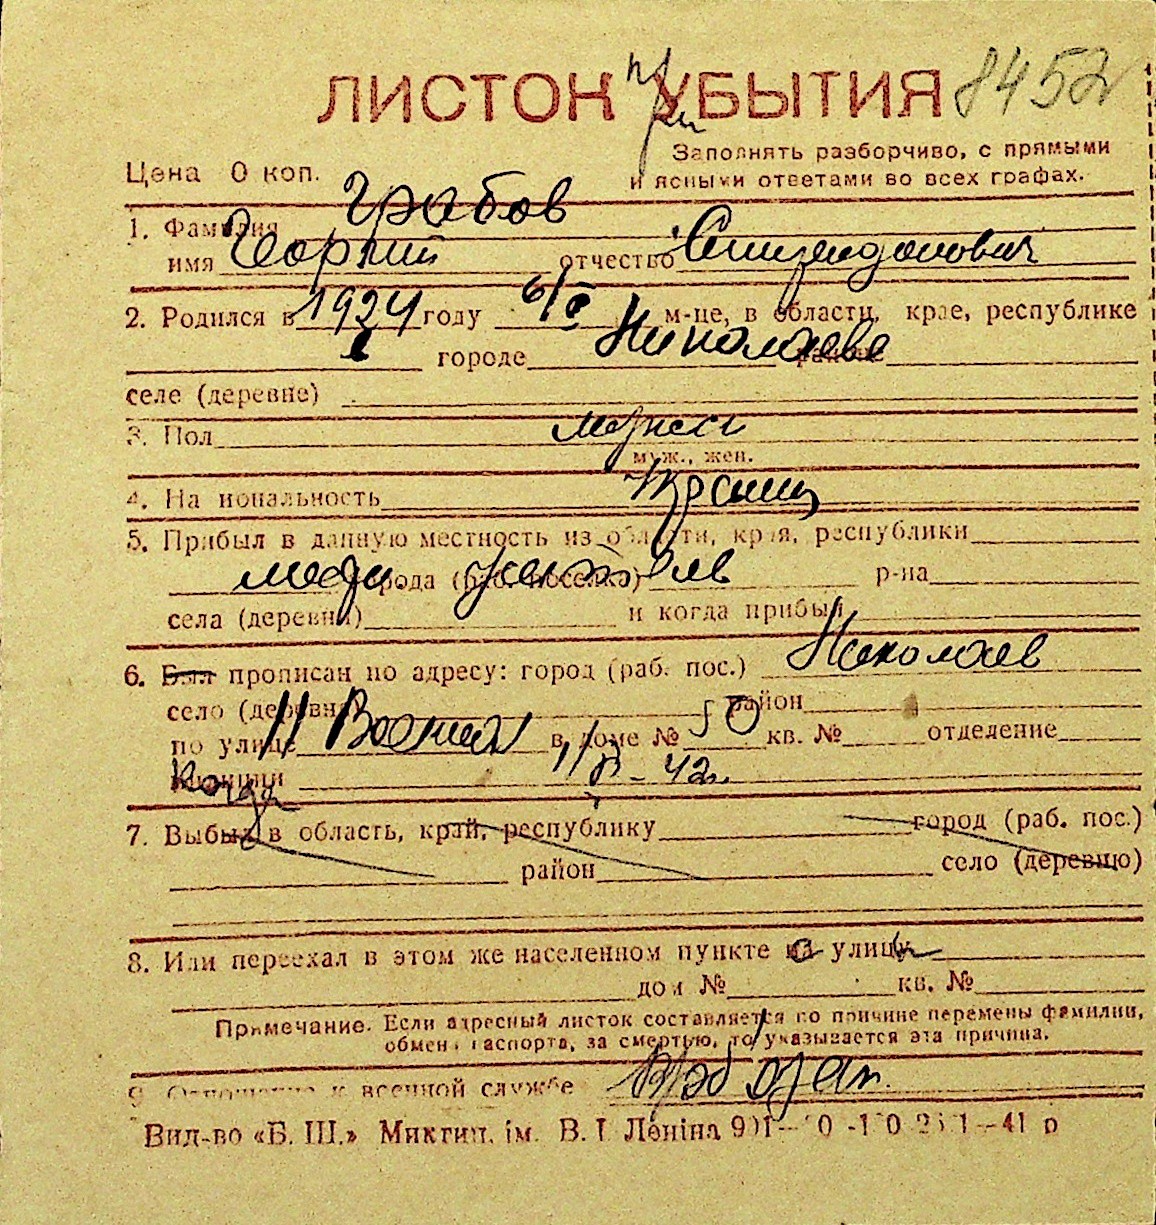 ЛИСТОК УБЫТИЯ 8452
Заполнять разборчиво, с прямыми
Цена 0 коп. и ясными ответами во всех графах.
1. Фамилия Грабов
имя Георгий отчество Спиридонович
2. Родился в 1924 году 6/X м-це, в области, крае, республике
городе Николаеве районе
селе (деревне)
3. Пол мужск
муж., жен.
4. Национальность
5. Прибыл в данную местность из области, края, республики
города (раб. поселка) р-на
села (деревни) и когда прибыл
6. Был прописан по адресу: город (раб. пос.) Николаев
село (деревня) район
по улице 11 Военная в доме № 50 кв. № отделение
милиции Когда
7. Выбыл в область, край, республику город (раб. пос.)
район село (деревню)
8. Или переехал в этом же населенном пункте на улицу
дом № кв. №
Примечание. Если адресный листок составляется по причине перемены фамилии,
обмена паспорта, за смертью, то указывается эта причина.
9. Отношение к военной службе
Вид-во «Б. Ш.» Микгип. ім. В. І. Леніна